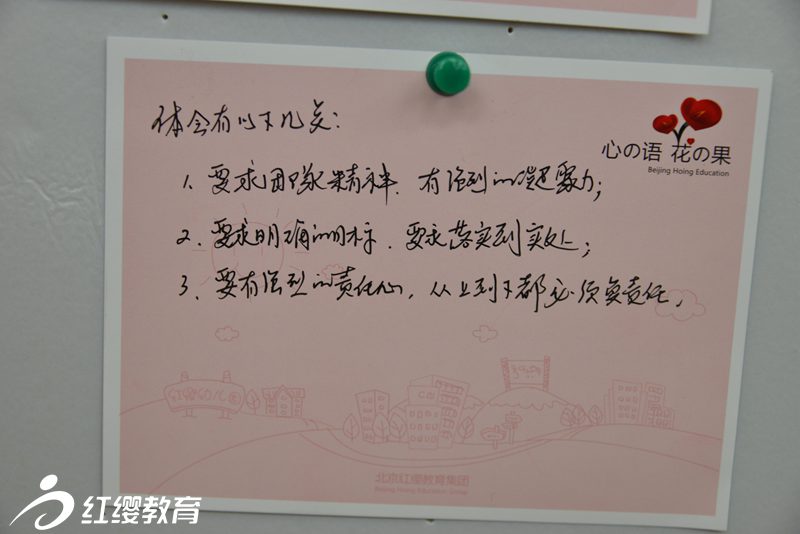 体会有以下几点：
心の语 花の果
Beijing Hoing Education
1、要求团队精神、有强烈的凝聚力；
2、要求明确的目标、要求落实到实处；
3、要有强烈的责任心，从上到下都必须负责任，
红缨幼儿园
北京红缨教育集团
Beijing Hoing Education Group
红缨教育